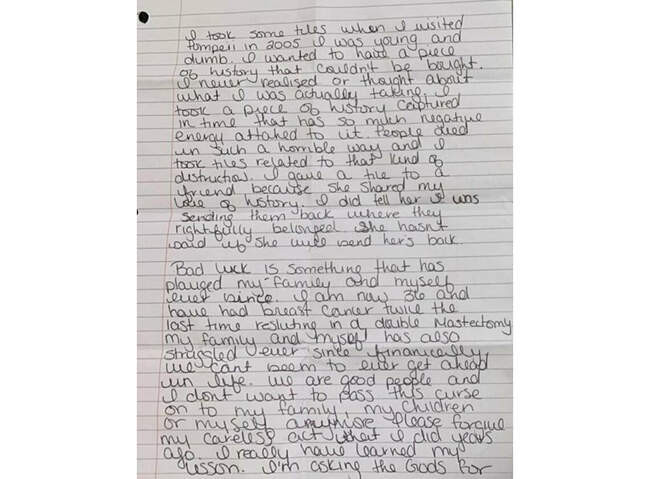 I took some tiles when I visited
Pompeii in 2005 I was young and
dumb. I wanted to have a piece
of history that couldn't be bought.
I never realised or thought about
what I was actually taking. I
took a piece of history captured
in time that has so much negative
energy attaked to it. People died
in such a horrible way and I
took tiles related to that kind of
distruction. I gave a tile to a
friend because she shared my
love of history. I did tell her I was
sending them back where they
rightfully belonged. She hasn't
said if she will send hers back.
Bad luck is something that has
plauged my family and myself
ever since. I am now 36 and
have had breast cancer twice the
last time resluting in a double Mastectomy
my family and myself has also
struggled ever since financially
we cant seem to ever get ahead
in life. We are good people and
I dont want to pass this curse
on to my family, my children
or myself anymore. Please forgive
my careless act that I did years
ago. I really have learned my
lesson. I'm asking the Gods for